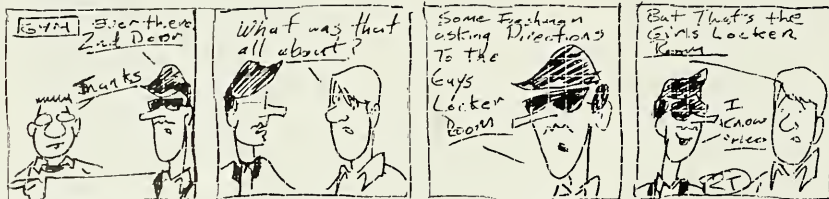 GYM
Over there
2nd Door
Thanks
What was that
all about?
Some Freshman
asking Directions
To the
Guys
Locker
Room
But That's the
Girls Locker
Room
I
know
RT